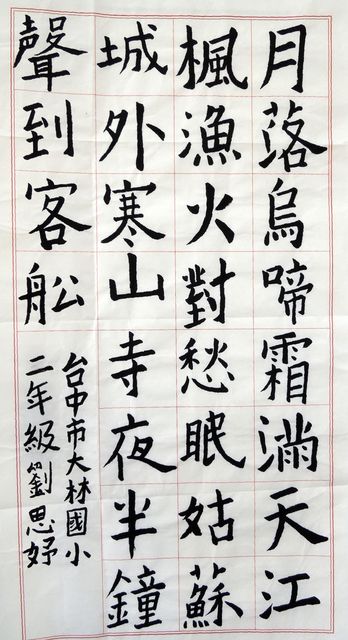 月落烏啼霜滿天江
楓漁火對愁眠姑蘇
城外寒山寺夜半鐘
聲到客船
台中市大林國小
二年級劉思妤